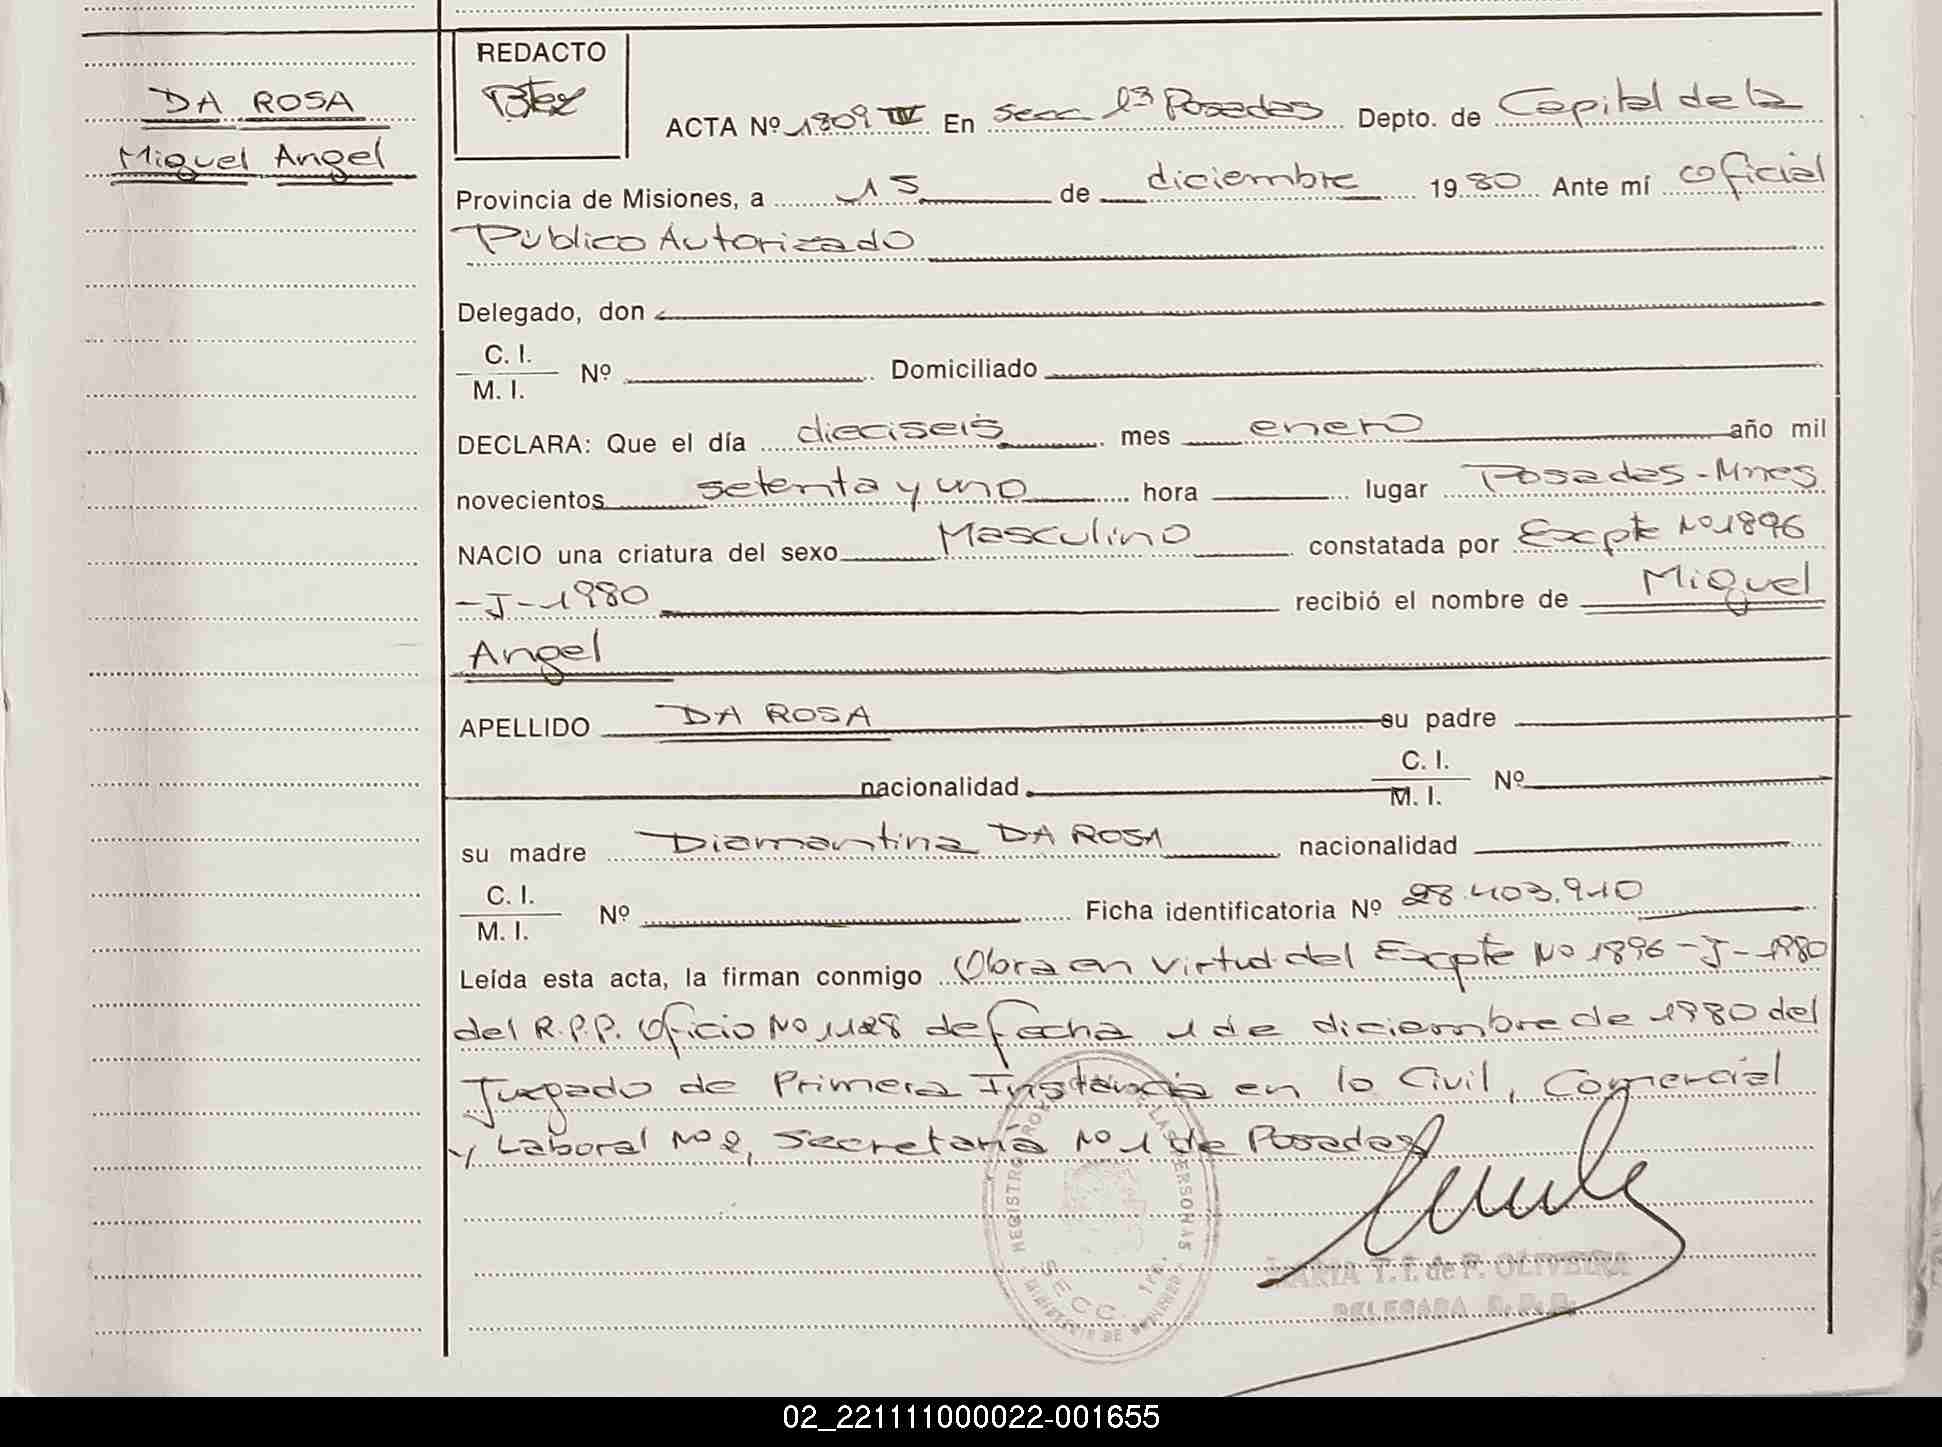 DA ROSA
Miguel Angel
REDACTO
ACTA Nº 1309 IV En Secc 1ª Posadas Depto. de Capital de la
Provincia de Misiones, a 15 de diciembre 1980 Ante mí oficial
Público Autorizado
Delegado, don
C. I.
M. I.
Nº Domiciliado
DECLARA: Que el día dieciseis mes enero año mil
novecientos setenta y uno hora lugar Posadas-Mnes
NACIO una criatura del sexo Masculino constatada por Excpte Nº 1896
-J-1980 recibió el nombre de Miguel
Angel
APELLIDO DA ROSA su padre
nacionalidad C. I. M. I. Nº
su madre Diamantina DA ROSA nacionalidad
C. I.
M. I.
Nº Ficha identificatoria Nº 28.403.910
Leída esta acta, la firman conmigo Obra en virtud del Excpte Nº 1896-J-1980
del R.P.P. Oficio Nº 1128 de fecha 1 de diciembre de 1980 del
Juzgado de Primera Instancia en lo Civil, Comercial
y Laboral Nº 2, Secretaria Nº 1 de Posadas
REGISTRO LAS PERSONAS
SECC. 1ra.
MARIA T. F. de P. OLIVEIRA
DELEGADA R. P. P.
02_221111000022-001655